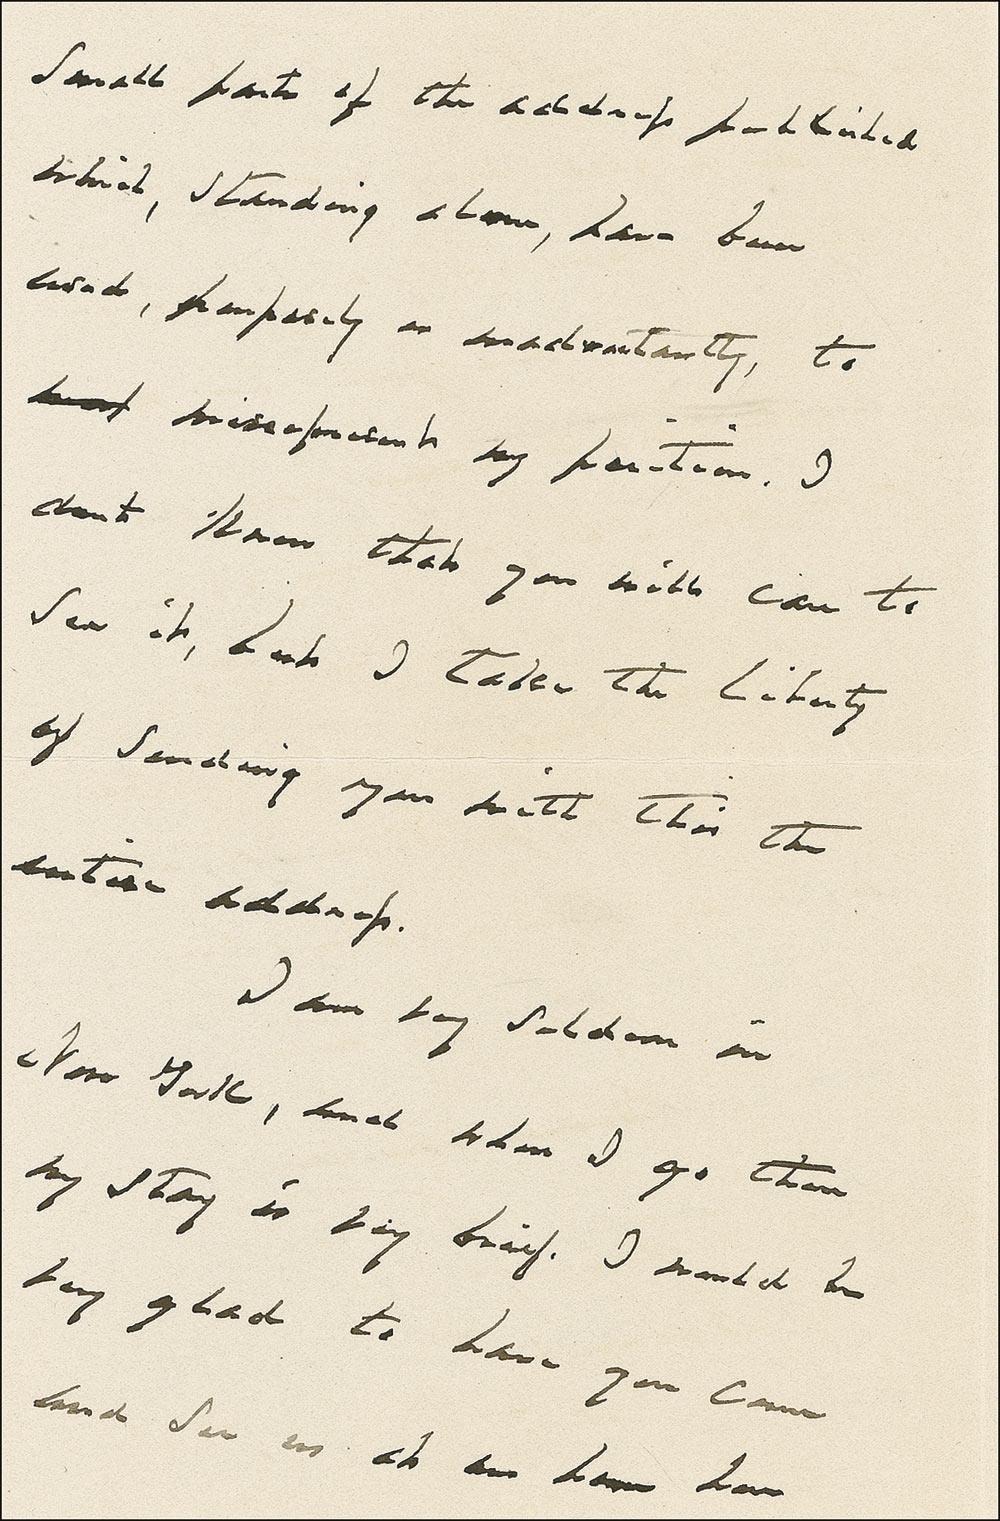 Small parts of the address published
which, standing alone, have been
used, purposely or inadvertantly, to
misrepresent my position. I
dont know that you will care to
see it, but I take the liberty
of sending you with this the
entire address.
I am very seldom in
New York, and when I go there
my stay is very brief. I would be
very glad to have you come
and see us at our home here